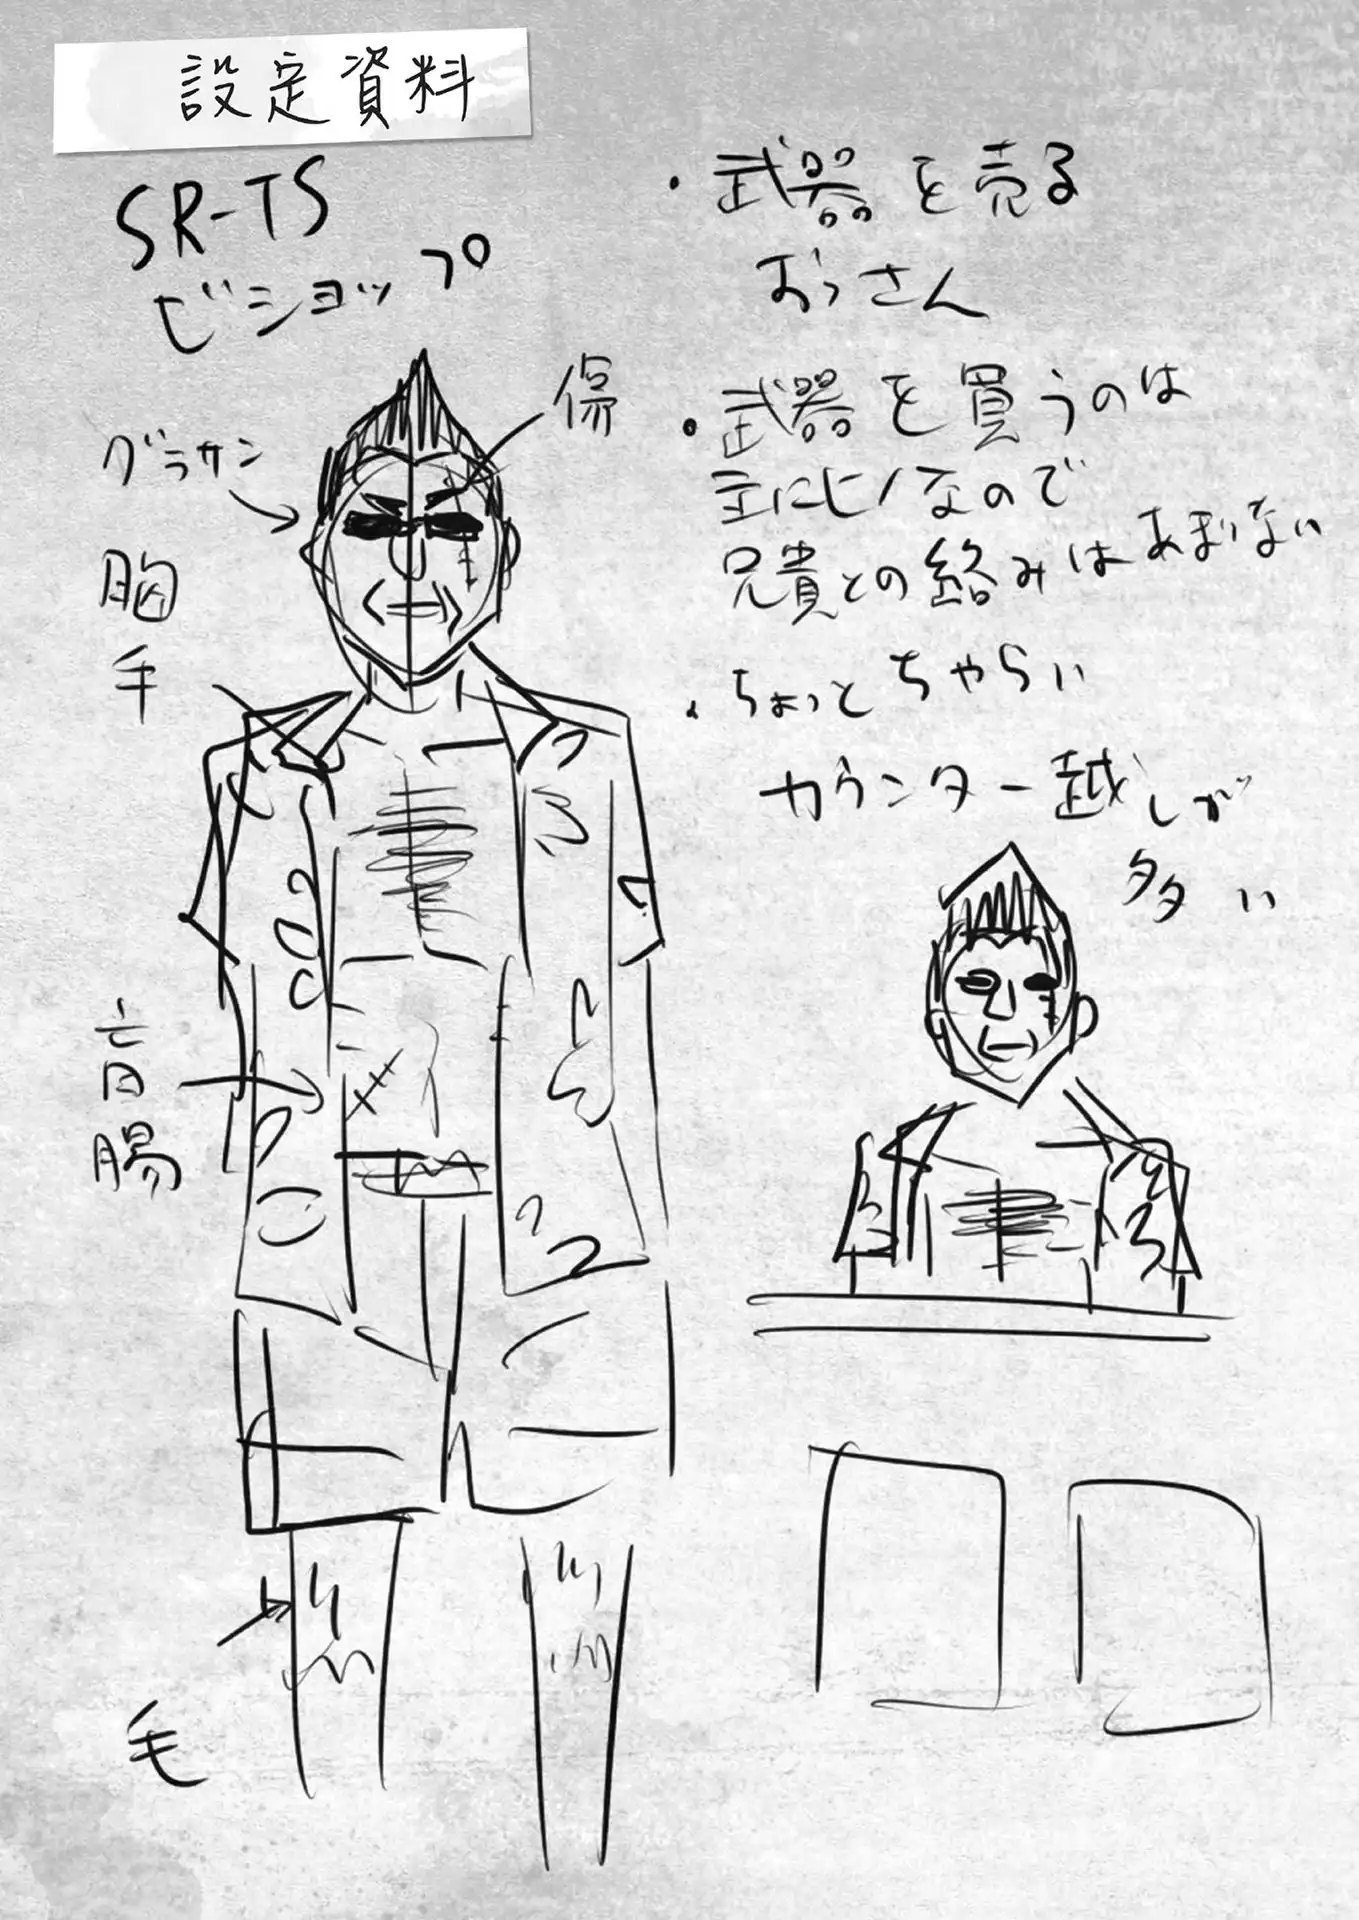 設定資料
SR-TS
ビショップ
・武器を売る
おっさん
傷
グラサン
・武器を買うのは
主にヒノなので
兄貴との絡みはあまりない
胸
・ちょっとちゃらい
カウンター越しが
多い
盲
腸
毛